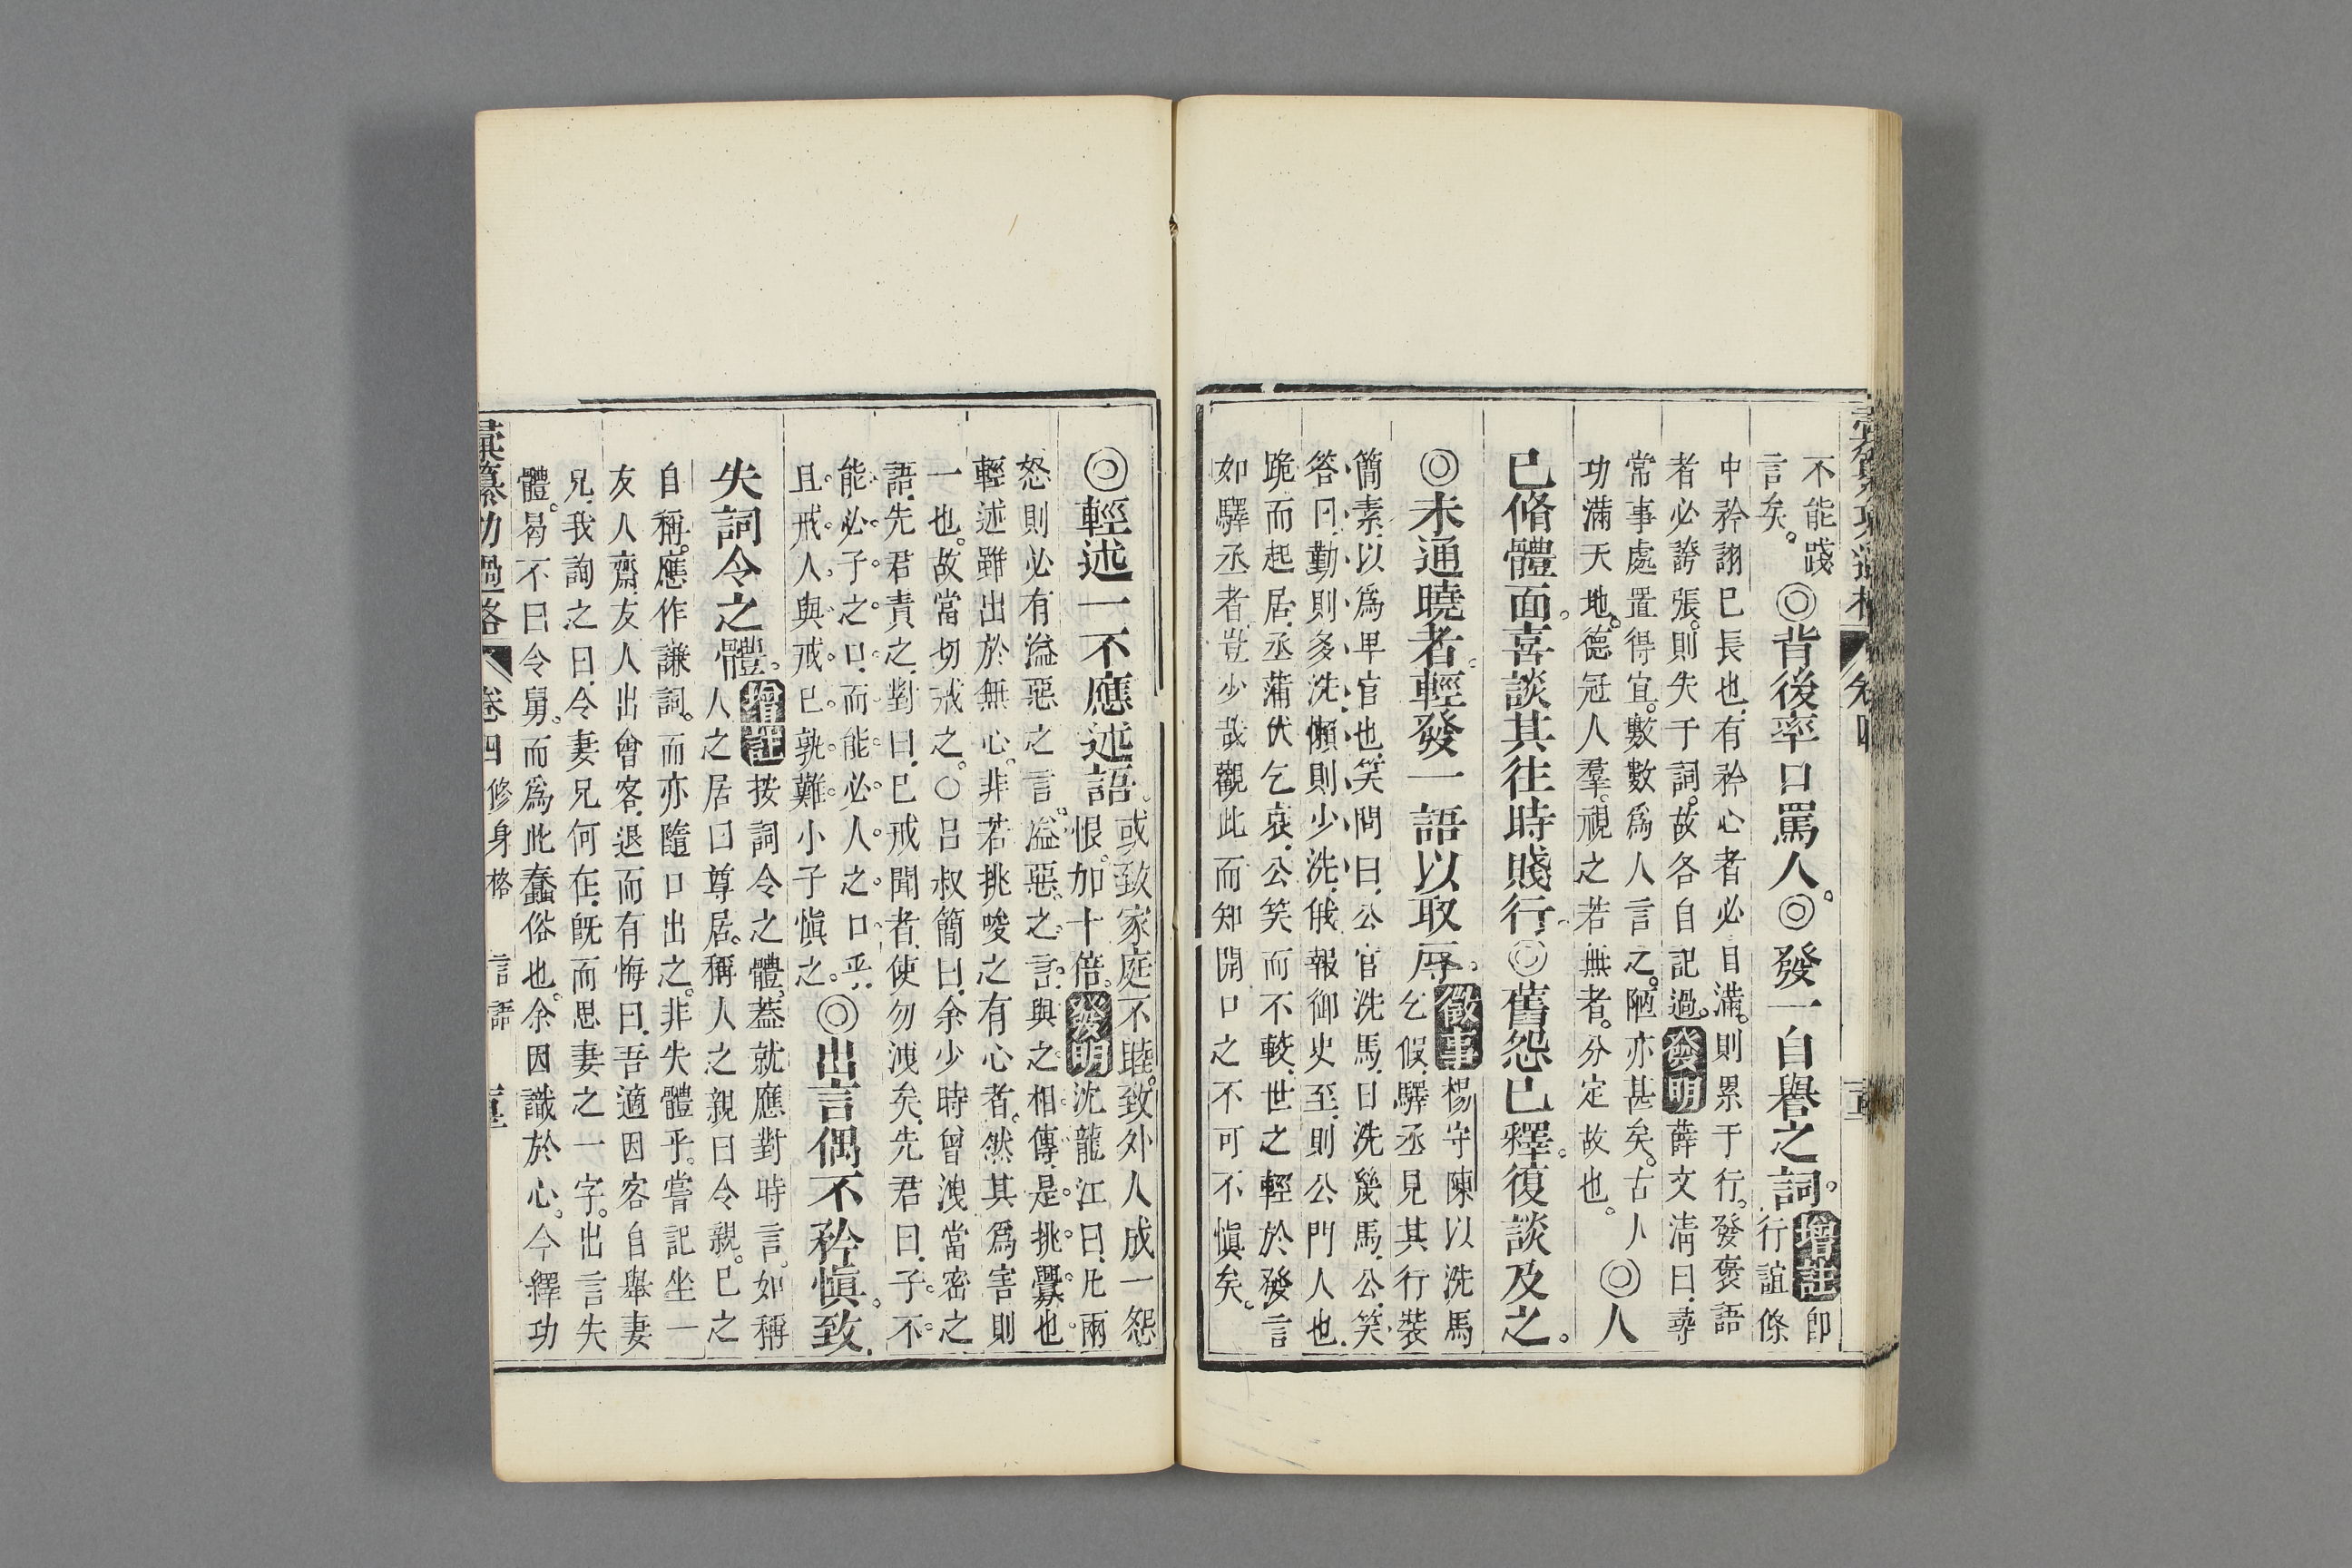 不能踐
言矣。
◎背後率口罵人。◎發一自譽之詞。
增註即
行誼條
中矜詡已長也。有矜心者必自滿。則累于行。發褒語
者必誇張。則失于詞。故各自記過。發明薛文清曰。尋
常事處置得宜。數數爲人言之。陋亦甚矣。古人
功滿天地。德冠人羣。視之若無者。分定故也。
◎人
已脩體面。喜談其往時賤行。◎舊怨已釋。復談及之。
◎未通曉者。輕發一語以取辱。
徵事楊守陳以洗馬
乞假。驛丞見其行裝
簡素。以爲卑官也。笑問曰。公官洗馬。日洗幾馬。公笑
答曰。勤則多洗。懶則少洗。俄報御史至。則公門人也。
跪而起居。丞蒲伏乞哀。公笑而不較。世之輕於發言
如驛丞者。豈少哉。觀此而知開口之不可不愼矣。
◎輕述一不應述語。
或致家庭不睦。致外人成一怨
恨。加十倍。發明沈龍江曰。凡兩
怒。則必有溢惡之言。溢惡之言。與之相傳。是挑釁也。
輕述雖出於無心。非若挑唆之有心者。然其爲害則
一也。故當切戒之。○呂叔簡曰。余少時曾洩當密之
語。先君責之。對曰。已戒聞者。使勿洩矣。先君曰。子不
能必子之口。而能必人之口乎。
且戒人與戒已。孰難。小子愼之。
◎出言偶不矜愼。致
失詞令之體。
增註按詞令之體。蓋就應對時言。如稱
人之居曰尊居。稱人之親曰令親。已之
自稱。應作謙詞。而亦隨口出之。非失體乎。嘗記坐一
友人齋。友人出曾客。退而有悔曰。吾適因客自舉妻
兄。我詢之曰。令妻兄何在。旣而思妻之一字。出言失
體。曷不曰令舅。而爲此蠢俗也。余因識於心。今繹功
彙纂功過格 卷四 修身格 言語